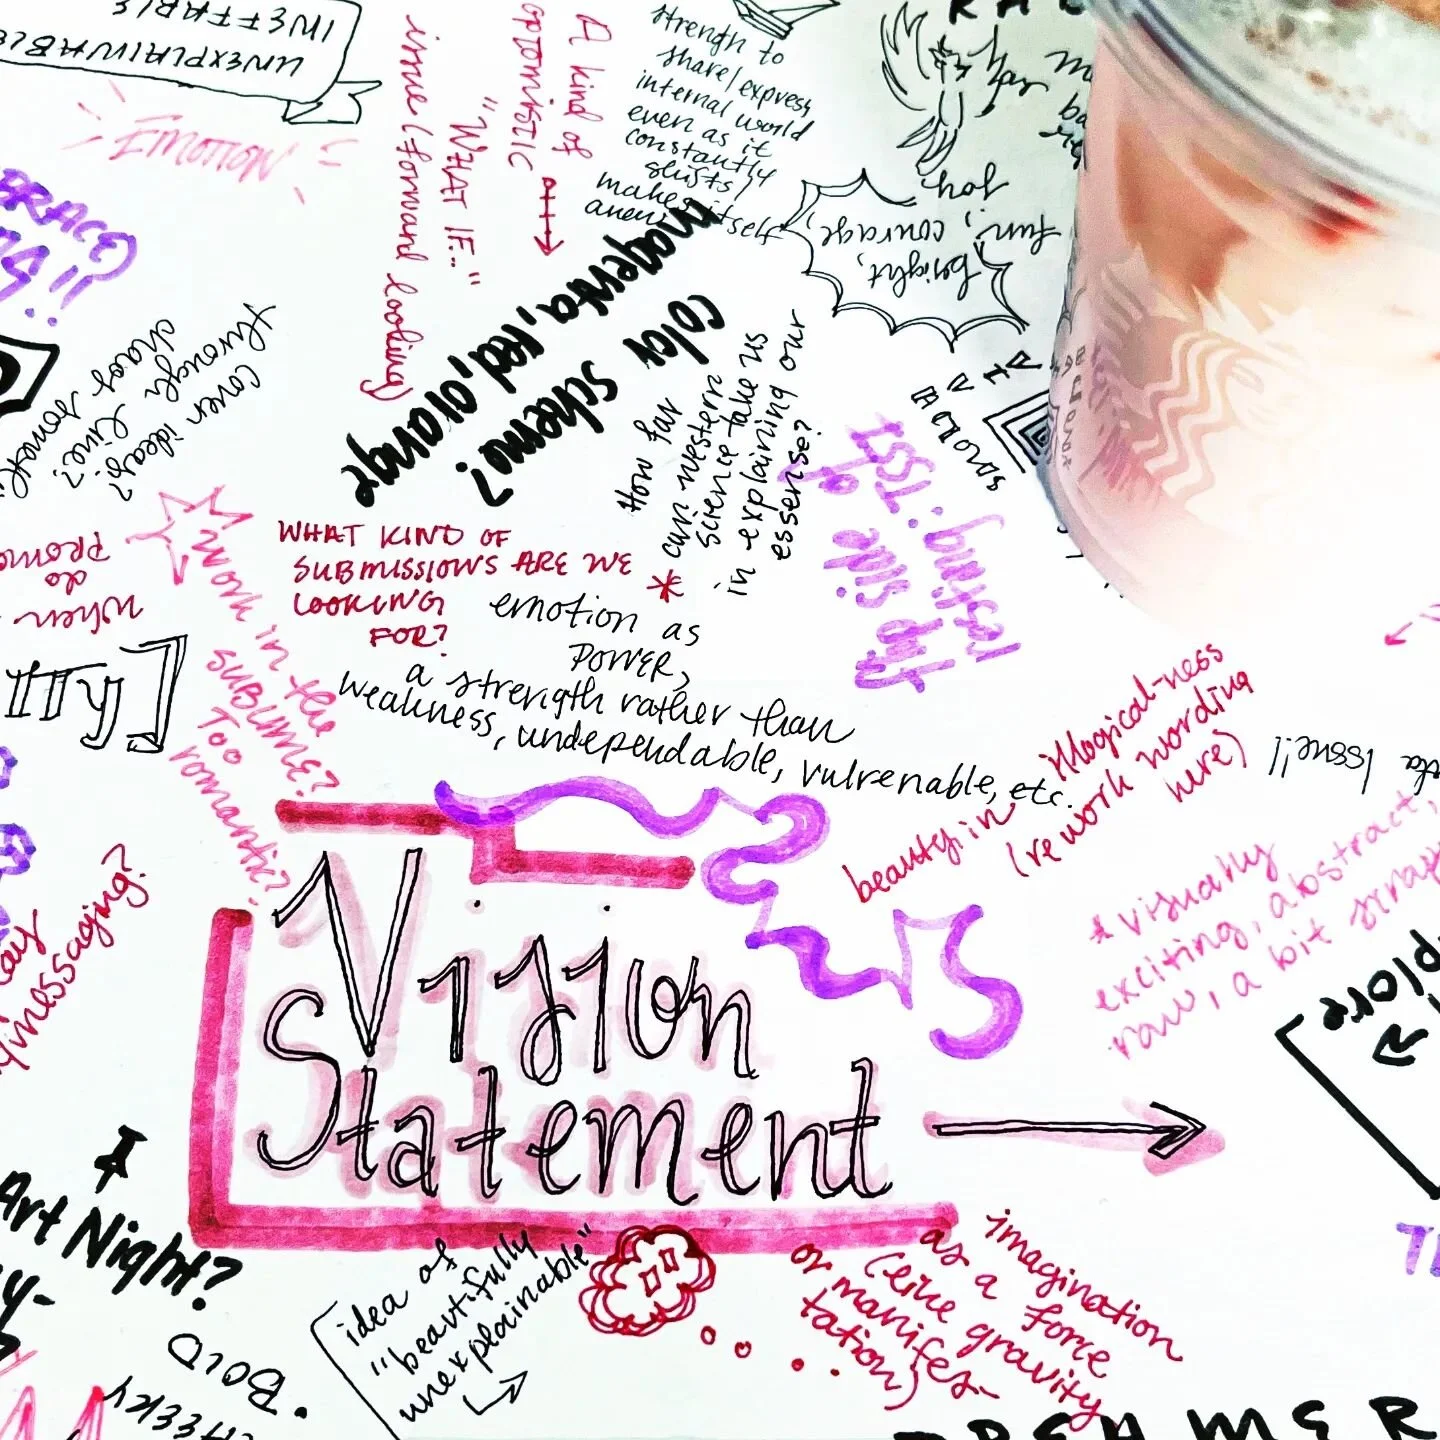 UNEXPLAINABLE
INEFFABLE
EMOTION
issue (forward looking)
"WHAT IF..."
OPTIMISTIC
A kind of
strength to
share/express
internal world
even as it
constantly
shifts/
makes itself
anew
bright,
fun, courage,
joy
magenta, red, orange
color schemo?
cover ideas?
through line?
How far
can western
science take us
in explaining our
essense?
testing: TSST
flip side of
WHAT KIND OF
SUBMISSIONS ARE WE
LOOKING
FOR?
*
emotion as
POWER,
a strength rather than
weakness, undependable, vulrenable, etc.
when
do
work in the
SUBLIME?
Too
romantic?
beauty in illogical-ness
(rework wording
here)
Issue!!
* visually
exciting, abstract,
raw, a bit
messaging?
Vision
Statement
Art Night?
BOLD
CHEEKY
idea of
"beautifully
unexplainable"
imagination
as a force
(like gravity
or manifes-
tation)
DREAMER